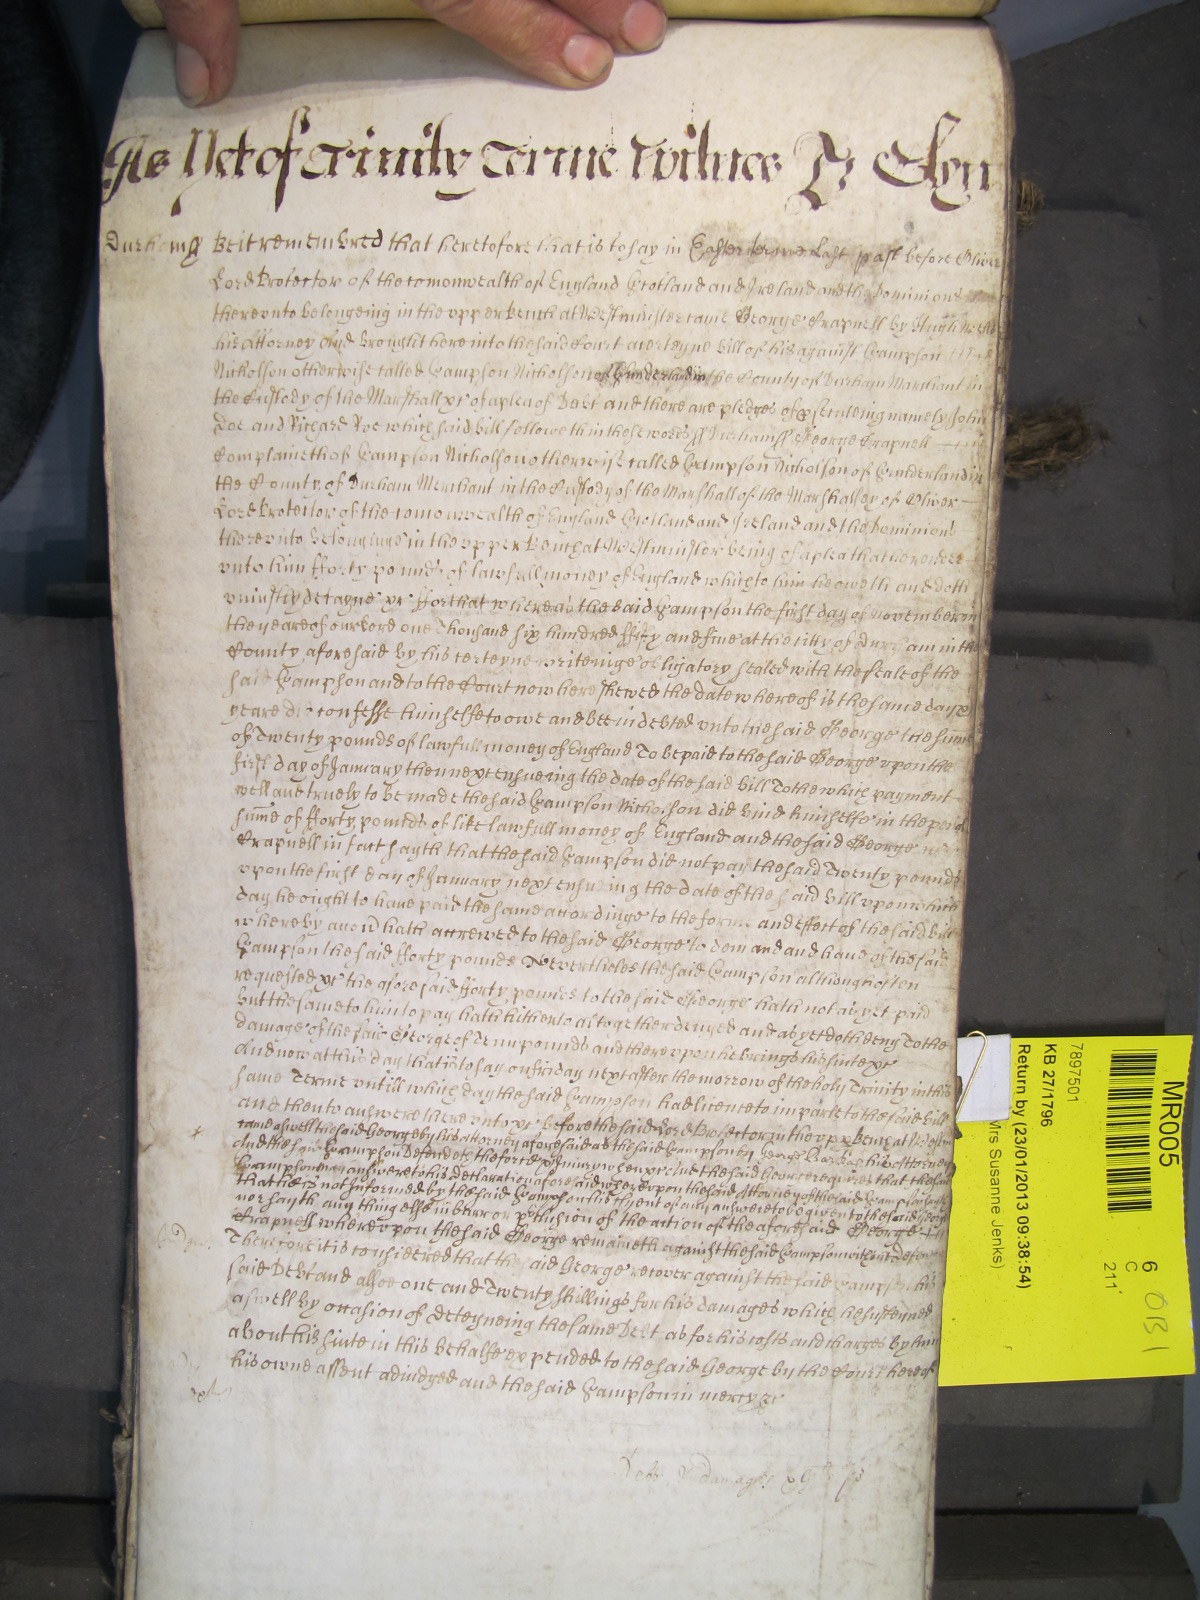 As Yet of Trinity Terme Witnes R: Glyn
Durham ss Beit remembred that heretofore that is to say in Easter terme last past before Oliver
Lord Protector of the comonwealth of England Scotland and Ireland and the Dominions
therevnto belongeing in the vpper bench at Westminster came George Crapnell by Hugh
his Attorney And brought here into the said Court a certeyne bill of his against Sampson
Nicholson otherwise called Sampson Nicholson of Sunderland in the County of Durham Marchant in
the Custody of the Marshall &c of a plea of Debt and there are pledges of prsecuteing namely John
Doe and Richard Roe which said bill followeth in these words ss Durham ss George Crapnell
Complaineth of Sampson Nicholson otherwise called Sampson Nicholson of Sunderland in
the County of Durham Merchant in the Custody of the Marshall of the Marshalsey of Oliver
Lord Protector of the comonwealth of England Scotland and Ireland and the Dominions
therevnto belonginge in the vpper bench at Westminster being of a plea that he render
vnto him fforty pounds of lawfull money of England which to him he oweth and doth
vniustly detayne &c ffor that whereas the said Sampson the first day of November in
the yeare of our Lord one Thousand six hundred ffifty and five at the citty of Durham in the
County aforesaid by his certeyne writeinge obligatory sealed with the seale of the
said Sampson and to the Court now here shewed the date whereof is the same day &
yeare did confesse himselfe to owe and bee indebted vnto the said George the sume
of Twenty pounds of lawfull money of England To be paid to the said George vpon the
first day of January then next ensueing the date of the said bill To the which payment
well and truely to be made the said Sampson Nicholson did bind himselfe in the penall
sume of fforty pounds of like lawfull money of England and the said George
Crapnell in fact sayth that the said Sampson did not pay the said Twenty pounds
vpon the first day of January next ensueing the date of the said bill vpon which
day he ought to have paid the same accordinge to the forme and effect of the said bill
whereby accon hath accrewed to the said George to demand and have of the said
Sampson the said fforty pounds Nevertheles the said Sampson although often
requested &c the aforesaid fforty pounds to the said George hath not as yet paid
but the same to him to pay hath hitherto altogether denyed and as yet doth deny To the
damage of the said George of Tenn pounds and therevpon he brings his suite &c
And now at this day that is to say on friday next after the morrow of the holy Trinity in this
same Terme vntill which day the said Sampson had licence to imparle to the said bill
and then to answere herevnto &c before the said Lord Protector in the vpper bench at Westm
came aswell the said George by his Attorney aforesaid as the said Sampson by George his Attorney
And the said Sampson Defendeth the force & iniury when &c And the said George requires that the said
Sampson may answere to his Declaration aforesaid wherevpon the said Attorney of the said Sampson sayth
that he is not informed by the said Sampson his Clyent of any answere to be given to the said George
nor sayth any thing else in barr or preclusion of the action of the aforesaid George
Crapnell wherevpon the said George remaineth against the said Sampson without defence
Therefore it is considered that the said George recover against the said Sampson his
said Debt and alsoe one and Twenty shillings for his damages which he susteyned
aswell by occasion of deteyneing the same Debt as for his costs and charges by him
about his suite in this behalfe expended to the said George by the Court here of
his owne assent adiudged and the said Sampson in mercy &c
Debt & damages
MR005
7897501
KB 27/1796
Return by (23/01/2013 09:38:54)
Mrs Susanne Jenks)
6
C
211